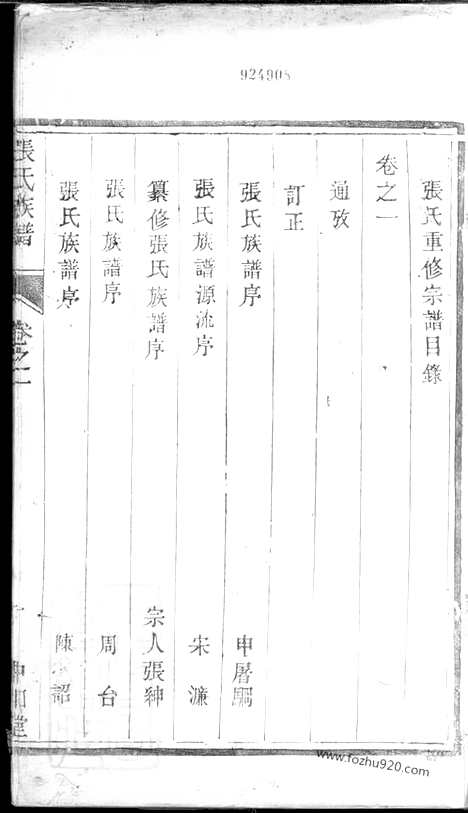 924908
張氏重修宗譜目錄
卷之一
通攷
訂正
張氏族譜序 申屠駉
張氏族譜源流序 宋濂
纂修張氏族譜序 宗人張紳
張氏族譜序 周台
張氏族譜序 陳 韶
張氏族譜 卷之一 堂
www.fozhu920.com